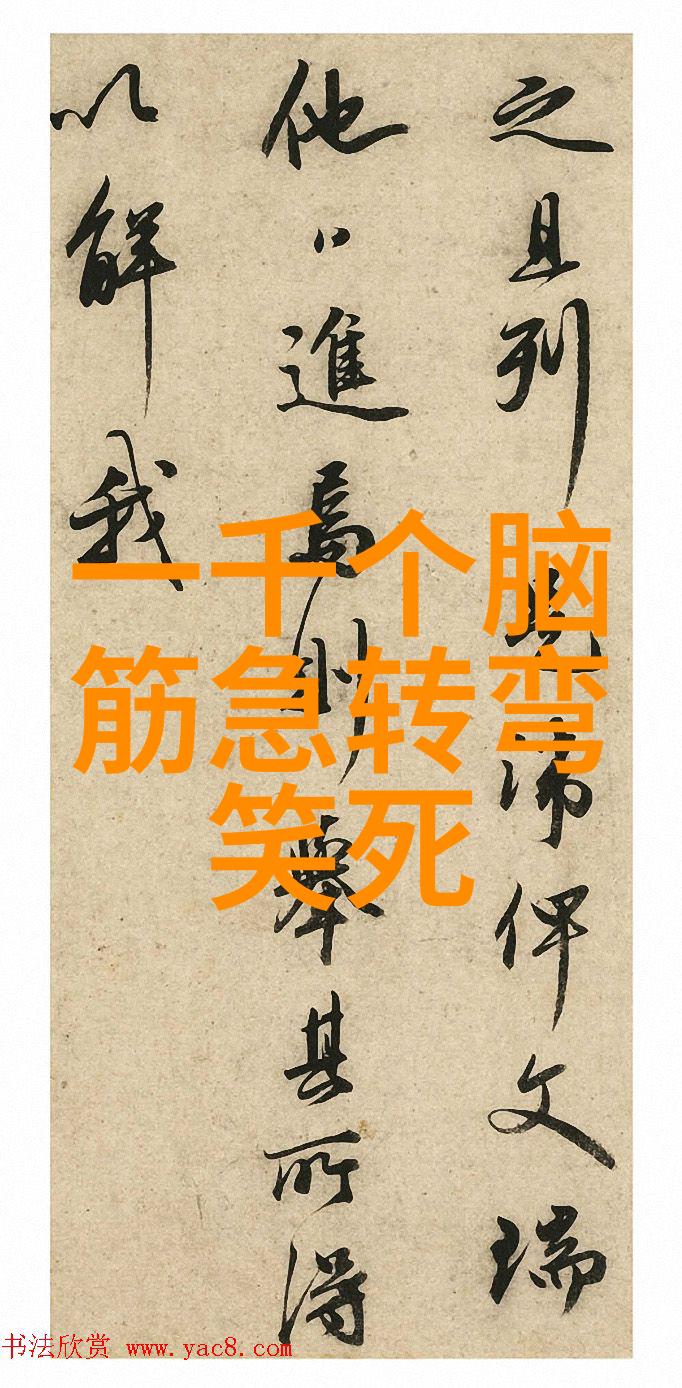 之且列見沛俾文瑞
他日進焉則舉其所得
以解我
一千个脑
筋急转弯
笑死
书法欣赏 www.yac8.com